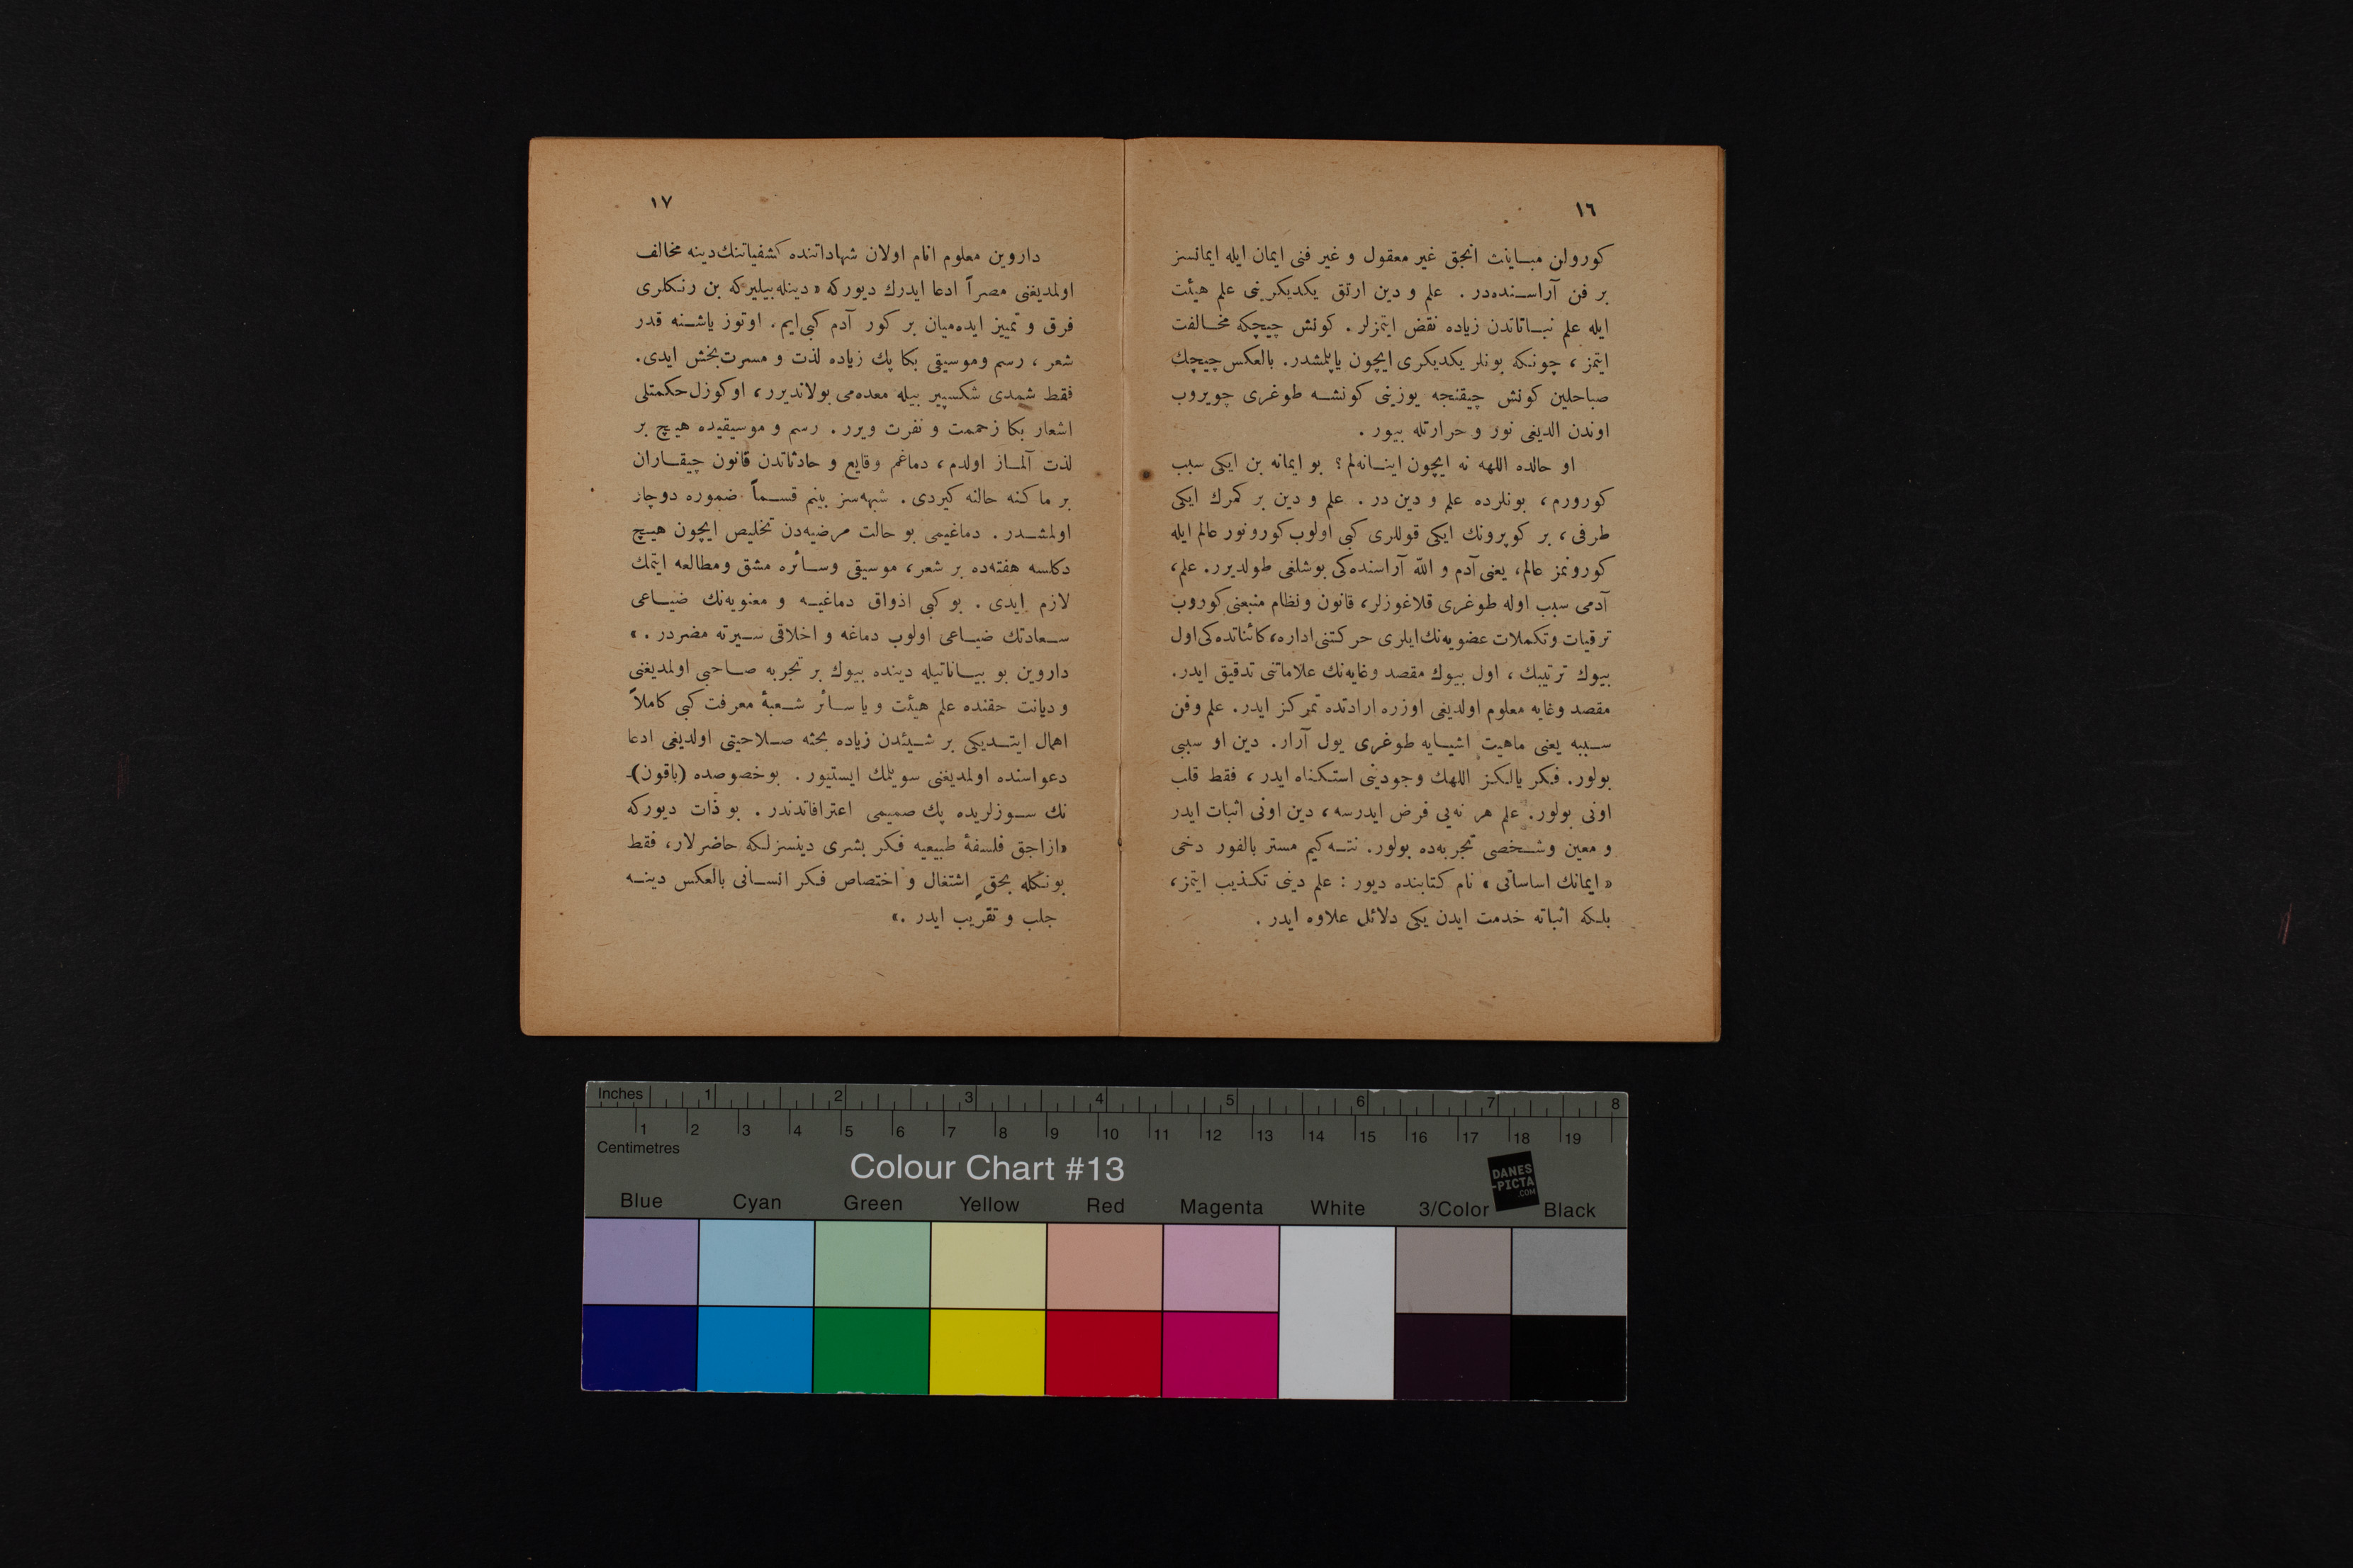 ١٦
كورولن مباينت انجق غير معقول و غير فنى ايمان ايله ايمانسز
بر فن آراسنده‌در . علم و دين ارتق يكديكرينى علم هيئت
ايله علم نباتاتدن زياده نقض ايتمزلر . كونش چيچكه مخالفت
ايتمز ، چونكه بونلر يكديكرى ايچون ياپلمشدر. بالعكس چيچك
صباحلين كونش چيقنجه يوزينى كونشه طوغرى چويروب
اوندن الديغى نور و حرارتله بيور .
او حالده اللهه نه ايچون اينانه‌لم؟ بو ايمانه بن ايكى سبب
كورورم ، بونلرده علم و دين در . علم و دين بر كمرك ايكى
طرفى ، بر كوپرونك ايكى قوللرى كبى اولوب كورونور عالم ايله
كورونمز عالم، يعنى آدم و الله آراسنده‌كى بوشلغى طولديرر. علم،
آدمى سبب اوله طوغرى قلاغوزلر، قانون ونظام منبعنى كوروب
ترقيات وتكملات عضويه‌نك ايلرى حركتنى اداره، كائناتده‌كى اول
بيوك ترتيبك ، اول بيوك مقصد وغايه‌نك علاماتنى تدقيق ايدر.
مقصد وغايه معلوم اولديغى اوزره ارادتده تمركز ايدر. علم وفن
سببه يعنى ماهيت اشيايه طوغرى يول آرار. دين او سببى
بولور. فكر يالكز اللهك وجودينى استكناه ايدر ، فقط قلب
اونى بولور. علم هر نه‌يى فرض ايدرسه ، دين اونى اثبات ايدر
و معين وشخصى تجربه‌ده بولور. نته‌كيم مستر بالفور دخى
« ايمانك اساساتى » نام كتابنده ديور : علم دينى تكذيب ايتمز،
بلكه اثباته خدمت ايدن يكى دلائل علاوه ايدر .
١٧
داروين معلوم انام اولان شهاداتنده كشفياتنك دينه مخالف
اولمديغنى مصراً ادعا ايدرك ديوركه « دينله بيليركه بن رنكلرى
فرق و تمييز ايده‌ميان بر كور آدم كبى‌ايم . اوتوز ياشنه قدر
شعر ، رسم وموسيقى بكا پك زياده لذت و مسرت‌بخش ايدى.
فقط شمدى شكسپير بيله معده‌مى بولانديرر ، اوكوزل حكمتلى
اشعار بكا زحمت و نفرت ويرر . رسم و موسيقيده هيچ بر
لذت آلماز اولدم ، دماغم وقايع و حادثاتدن قانون چيقاران
بر ماكنه حالنه كيردى . شبهه‌سز بينم قسماً ضموره دوچار
اولمشدر . دماغيمى بو حالت مرضيه‌دن تخليص ايچون هيچ
دكلسه هفته‌ده بر شعر، موسيقى وسائره مشق ومطالعه ايتمك
لازم ايدى . بو كبى اذواق دماغيه و معنويه‌نك ضياعى
سعادتك ضياعى اولوب دماغه و اخلاقى سيرته مضردر . »
داروين بو بياناتيله دينده بيوك بر تجربه صاحبى اولمديغنى
و ديانت حقنده علم هيئت و يا سائر شعبهٔ معرفت كبى كاملاً
اهمال ايتديكى بر شيئدن زياده بحثه صلاحيتى اولديغى ادعا
دعواسنده اولمديغنى سويلمك ايستيور . بو خصوصده (باقون)ـ
نك سوزلريده پك صميمى اعترافاتدندر . بو ذات ديوركه
«ازاجق فلسفهٔ طبيعيه فكر بشرى دينسزلكه حاضرلار، فقط
بونكله بحق اشتغال و اختصاص فكر انسانى بالعكس دينه
جلب و تقريب ايدر .»
Inches 1 2 3 4 5 6 7 8
1 2 3 4 5 6 7 8 9 10 11 12 13 14 15 16 17 18 19
Centimetres
Colour Chart #13
DANES
-PICTA
.COM
Blue Cyan Green Yellow Red Magenta White 3/Color Black